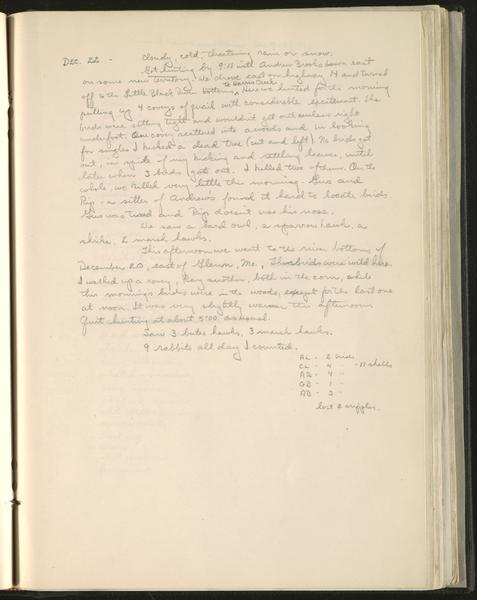 Dec. 22 - Cloudy, cold, threatening rain or snow.
Got hunting by 9:00 with Andrew Brooks down east
on some new territory. We drove east on highway H and turned
off to the Little Black River bottoms, to Harris Creek. Here we hunted for the morning
putting up 4 coveys of quail with considerable excitement. The
birds were sitting tight and wouldn't get out unless right
underfoot. One covey scattered into a woods and in looking
for singles I kicked a dead tree (cut and left). No birds got
out, in spite of my kicking and rattling leaves, until
later when 3 birds got out. I killed two of them. On the
whole, we killed very little this morning. Gus and
Rip - a setter of Andrews found it hard to locate birds.
Gus was tired and Rip doesn't use his nose.
We saw a bard owl, a sparrow hawk, a
shrike, 2 marsh hawks.
This afternoon we went to the river bottoms of
December 20, east of Glenn, Mo., These birds were wild here.
I walked up a covey, Ray another, both in the corn, while
this mornings birds were in the woods, except for the last one
at noon. It was very slightly warmer this afternoon.
Quit hunting at about 5:00 as usual.
Saw 3 buteo hawks, 3 marsh hawks.
9 rabbits all day I counted.
AL - 2 birds
CL - 4 " - 11 shells
AB - 4 "
GB - 1 "
AB - 2 "
lost 2 cripples.